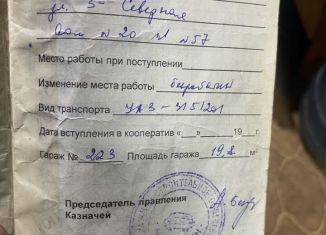 ул. 5- Северная
дом № 20 кв № 57
Место работы при поступлении
Изменение места работы
Вид транспорта УАЗ - 315201
Дата вступления в кооператив «__»____19__г.
Гараж № 223 Площадь гаража 19,8 м
Председатель правления
Казначей